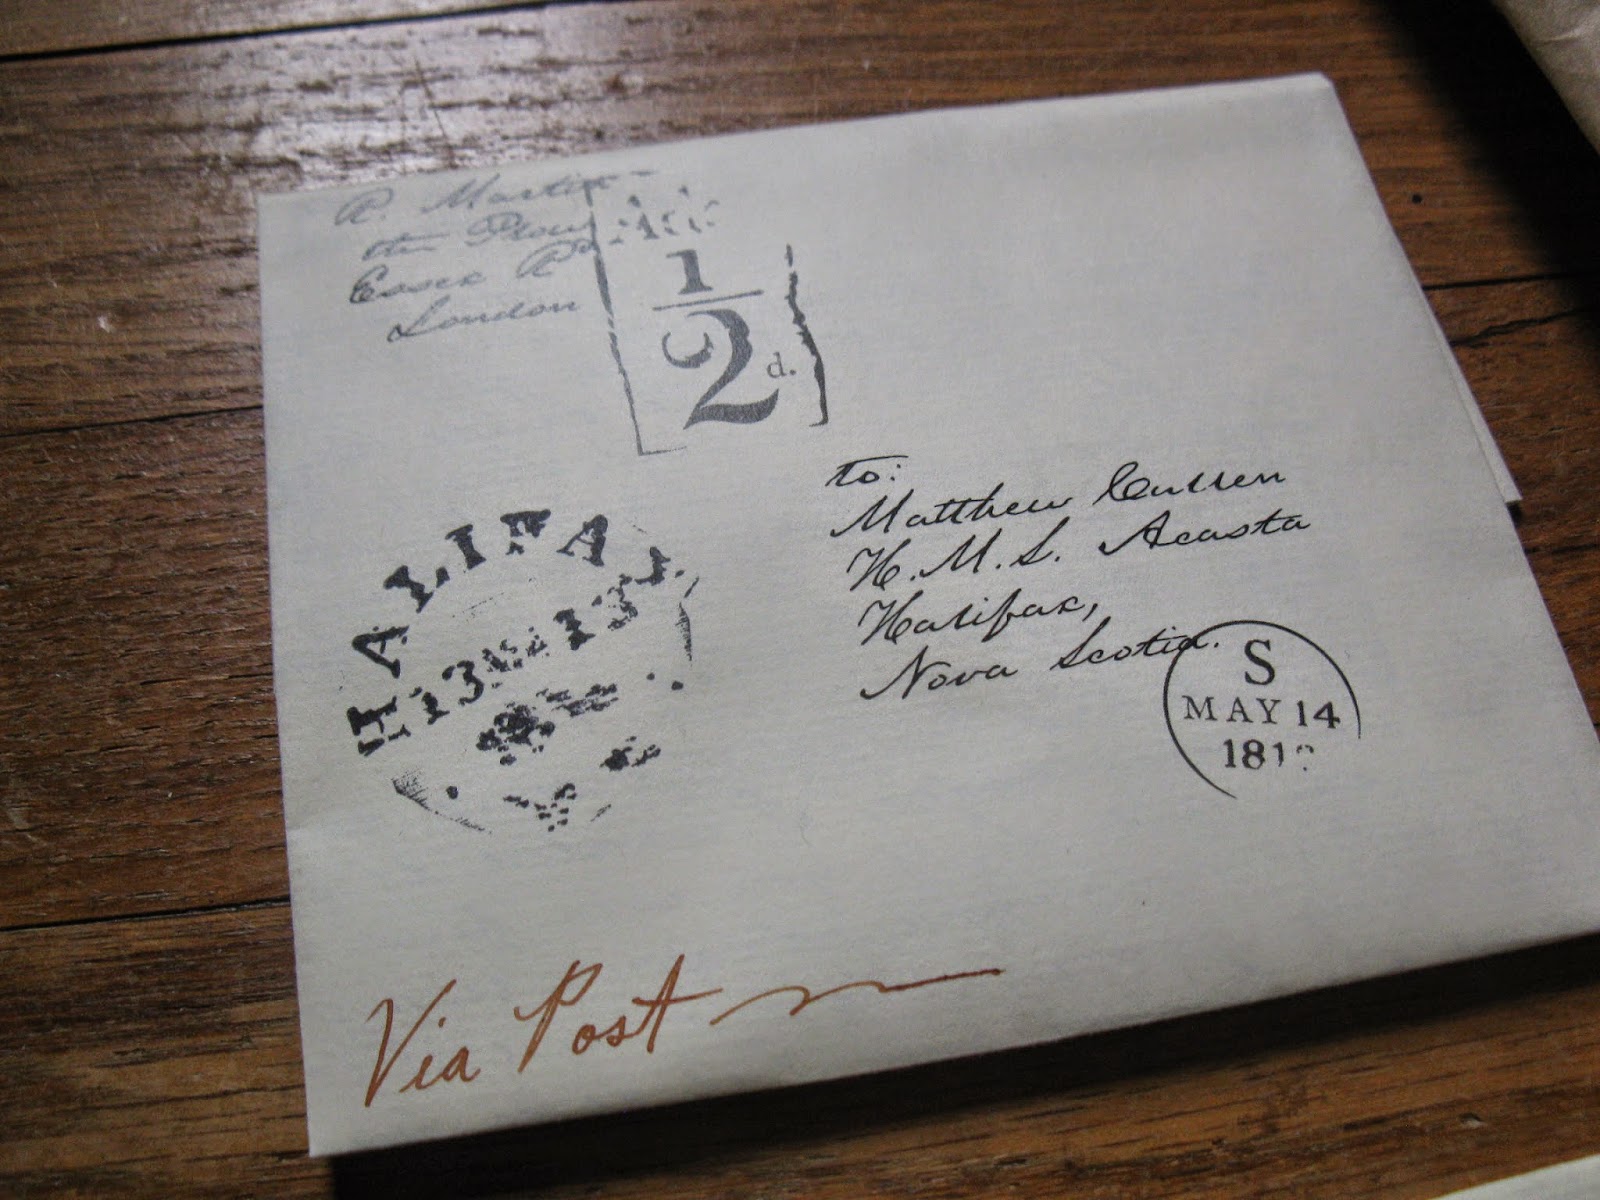 R. Martin
the Plow
Essex Rd
London
1
2
d.
to:
Matthew Cullen
H.M.S. Acasta
Halifax,
Nova Scotia.
HALIFAX
S
MAY 14
181
Via Post